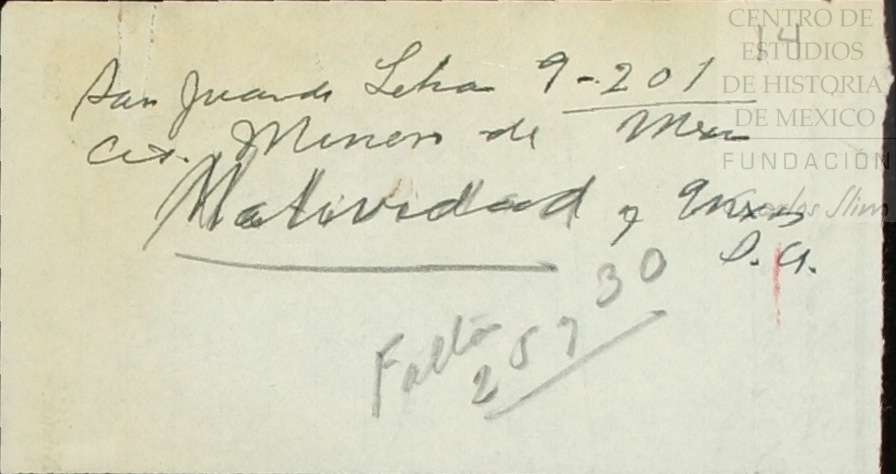 14
San Juan de Letran 9-201
Cia. Minera de Mex
Natividad y Anexas
S.A.
Falta
25 y 30
CENTRO DE
ESTUDIOS
DE HISTORIA
DE MEXICO
FUNDACIÓN
Carlos Slim